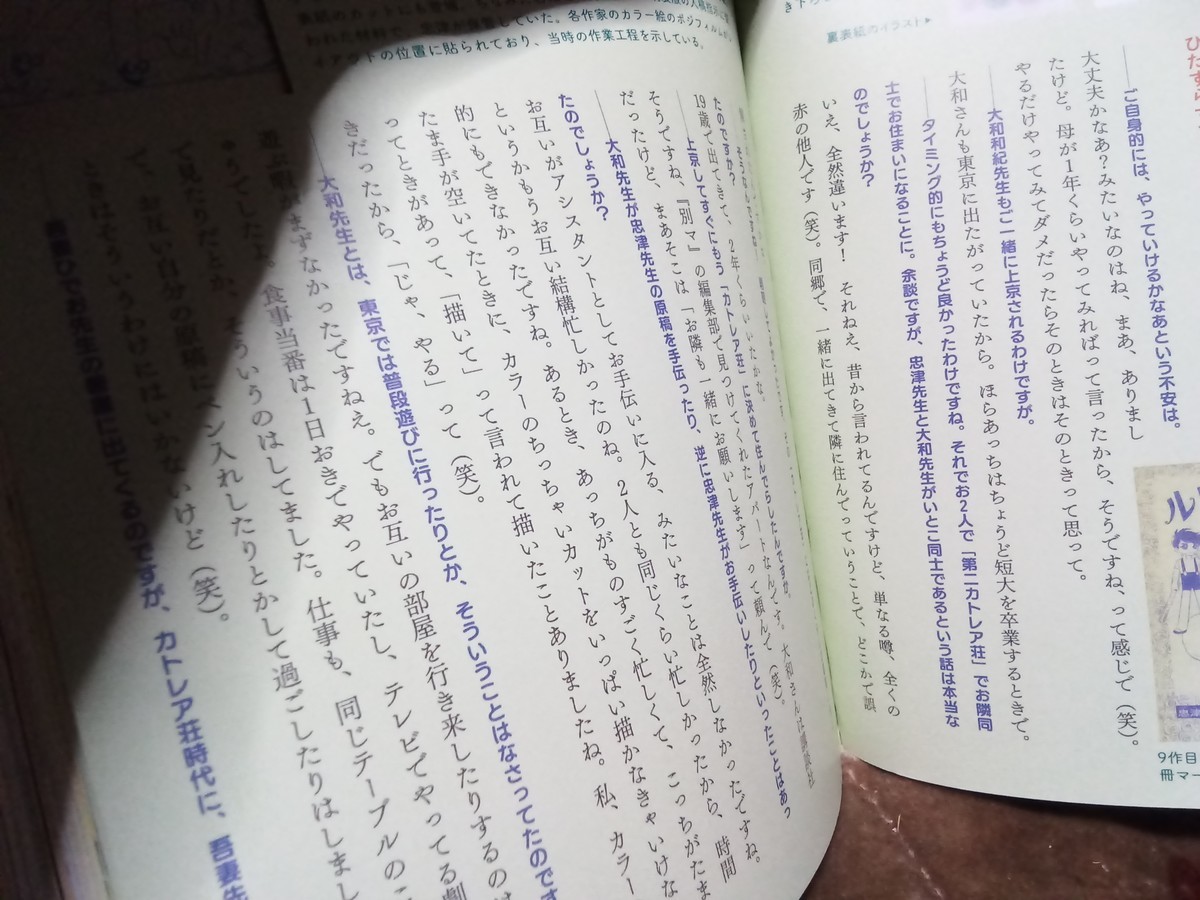 ひたすら
裏表紙のイラスト▶
──ご自身的には、やっていけるかなあという不安は。
大丈夫かなあ?みたいなのはね、まあ、ありまし
たけど。母が1年くらいやってみればって言ったから、そうですね、って感じで(笑)。
やるだけやってみてダメだったらそのときはそのときって思って。
──大和和紀先生もご一緒に上京されるわけですが。
大和さんも東京に出たがっていたから。ほらあっちはちょうど短大を卒業するときで。
──タイミング的にもちょうど良かったわけですね。それでお2人で「第二カトレア荘」でお隣同
士でお住まいになることに。余談ですが、忠津先生と大和先生がいとこ同士であるという話は本当な
のでしょうか?
いえ、全然違います! それねえ、昔から言われてるんですけど、単なる噂、全くの
赤の他人です(笑)。同郷で、一緒に出てきて隣に住んでっていうことで、どこかで誤
9作目
冊マー
われた材料で、
各作家のカラー絵のポジフィルムが
の位置に貼られており、当時の作業工程を示している。
──上京してすぐにもう「カトレア荘」に決めて住んでらしたんですか。
19歳で出てきて、2年くらいいたかな。
たのですか?
そうですね、『別マ』の編集部で見つけてくれたアパートなんです。大和さんは講談社
だったけど、まあそこは「お隣も一緒にお願いします」って頼んで(笑)。
──大和先生が忠津先生の原稿を手伝ったり、逆に忠津先生がお手伝いしたりといったことはあっ
たのでしょうか?
お互いがアシスタントとしてお手伝いに入る、みたいなことは全然しなかったですね。
というかもうお互い結構忙しかったのね。2人とも同じくらい忙しかったから、時間
的にもできなかったですね。あるとき、あっちがものすごく忙しくて、こっちがたま
たま手が空いてたときに、カラーのちっちゃいカットをいっぱい描かなきゃいけな
ってときがあって、「描いて」って言われて描いたことありましたね。私、カラー
きだったから、「じゃ、やる」って(笑)。
──大和先生とは、東京では普段遊びに行ったりとか、そういうことはなさってたのです
遊ぶ暇がまずなかったですねえ。でもお互いの部屋を行き来したりするのは
してましたよ。食事当番は1日おきでやっていたし、テレビでやってる劇
とか、そういうのはしてました。仕事も、同じテーブルの
で、お互い自分の原稿にペン入れしたりとかして過ごしたりはしまし
ときはそういうわけにはいかないけど(笑)。
お先生の書庫に出てくるのですが、カトレア荘時代に、吾妻先